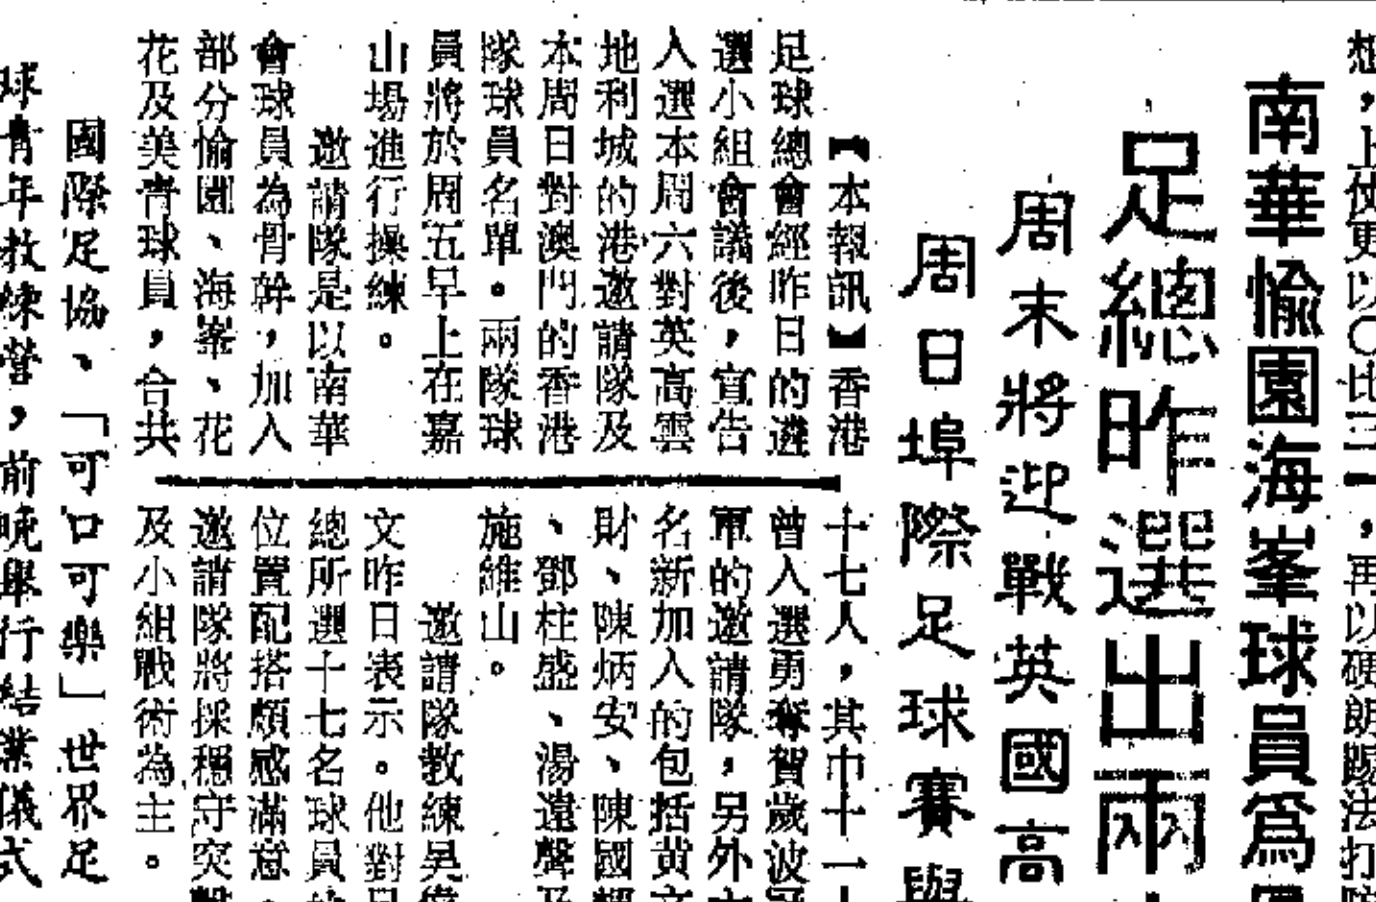 想，上仗更以〇比三一，再以硬朗踢法打
南華愉園海峯球員爲
足總昨選出兩
周末將迎戰英國高
周日埠際足球賽與
【本報訊】香港
足球總會經昨日的遴
選小組會議後，宣告
入選本周六對英高雲
地利城的港邀請隊及
本周日對澳門的香港
隊球員名單。兩隊球
員將於周五早上在嘉
山場進行操練。
邀請隊是以南華
會球員為骨幹，加入
部分愉園、海峯、花
花及美青球員，合共
十七人，其中十一
曾入選勇奪賀歲波冠
軍的邀請隊，另外六
名新加入的包括黃文
財、陳炳安、陳國輝
、鄧柱盛、湯遠聲及
施維山。
邀請隊教練吳偉
文昨日表示。他對足
總所選十七名球員的
位置配搭頗感滿意，
邀請隊將採穩守突擊
及小組戰術為主。
國際足協、「可口可樂」世界足
球青年教練營，前晚舉行結業儀式